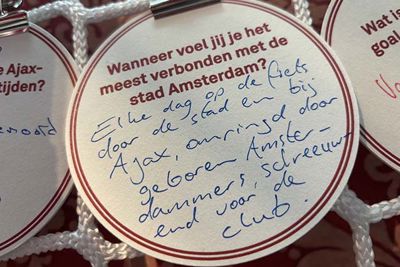 e Ajax-
tijden?
Wanneer voel jij je het
meest verbonden met de
stad Amsterdam?
Elke dag op de fiets
door de stad en bij
Ajax, omringd door
geboren Amster-
dammers, schreeuw-
end voor de
club.
Wat is
goal